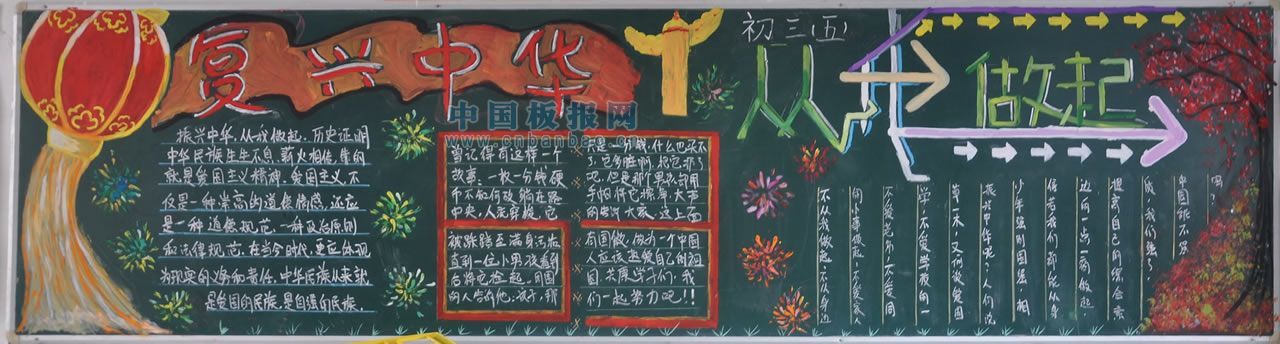 复兴中华
初三(五)
从我做起
中国板报网
www.cnbanbao.cn
振兴中华,从我做起.历史证明
中华民族生生不息,薪火相传,靠的
就是爱国主义精神.爱国主义不
仅是一种崇高的道德情感,还应
是一种道德规范,一种政治原则
和法律规范.在当今时代,更应体现
为现实的义务和责任.中华民族从来就
是爱国的民族,是自强的民族.
曾记得有这样一个
故事:一枚一分钱硬
币不知何故躺在路
中央,人来穿梭,它
被践踏至满身污垢
直到一位小男孩看到
后将它捡起.周围
的人告诉他:孩子,
一分钱,什么也买不
了,它多脏啊,
吧.但是那个男孩却用
手帕将它擦净,大声
有国徽.作为一个中国
人应该热爱自己的祖
国.
们一起努力吧!!
吗?
中国能不努
成,我们强了
提高自己的综合素
边的一点一滴做起
信若我们都能从身
少年强则国强,相
振兴中华呢?人们说
草一木,又何谈爱国
学,不爱学校的一
不爱老师,不爱同
周小事做起,不爱家人
不从我做起,不从身边